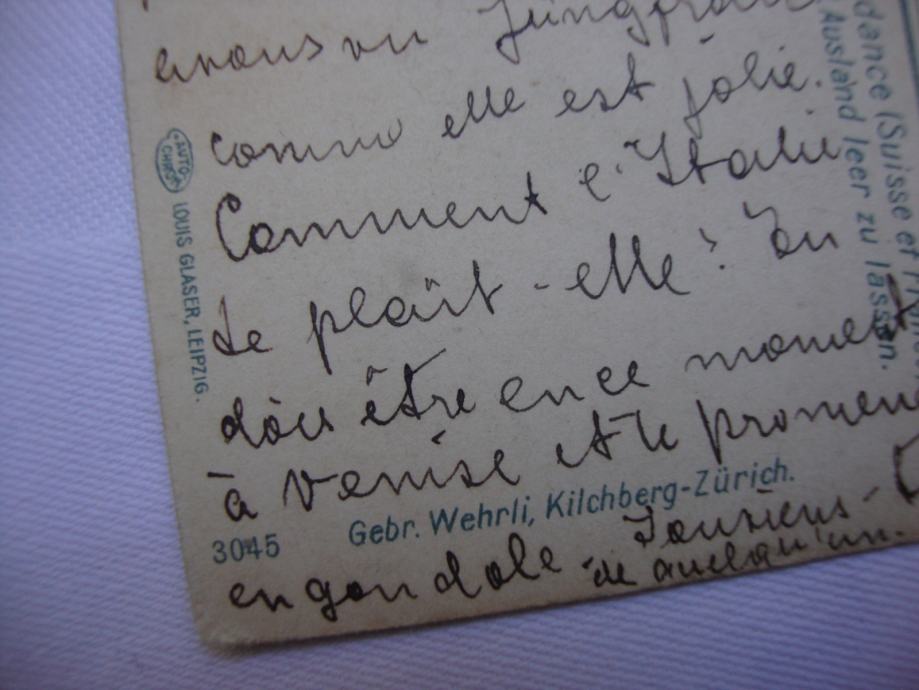 avons vu Jungfrau
comme elle est jolie.
Comment l'Italie
te plaît-elle? Tu
dois être en ce moment
à Venise et te promener
en gondole
de quelqu'un.
AUTO-
CHROM
LOUIS GLASER, LEIPZIG.
3045
Gebr. Wehrli, Kilchberg-Zürich.
dance (Suisse et
Ausland leer zu lassen.